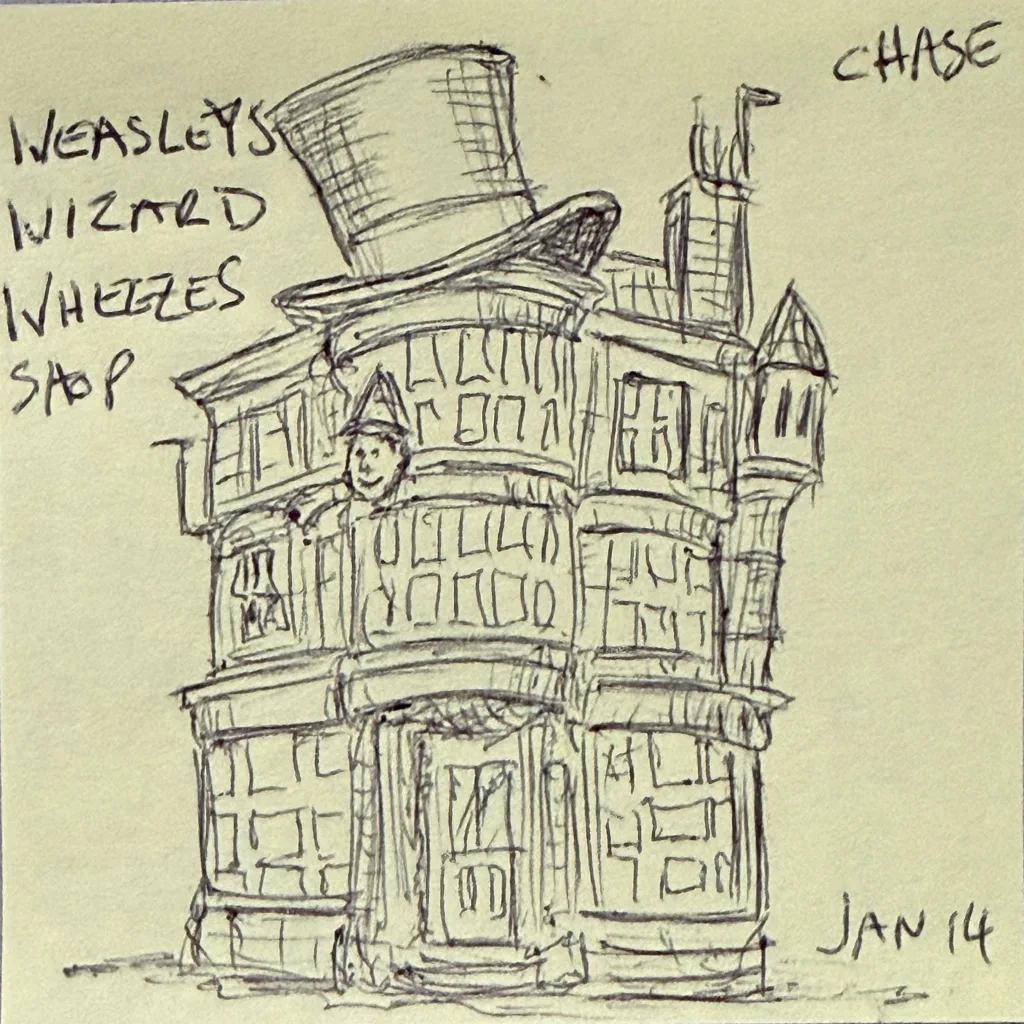 CHASE
WEASLEYS
WIZARD
WHEEZES
SHOP
JAN 14